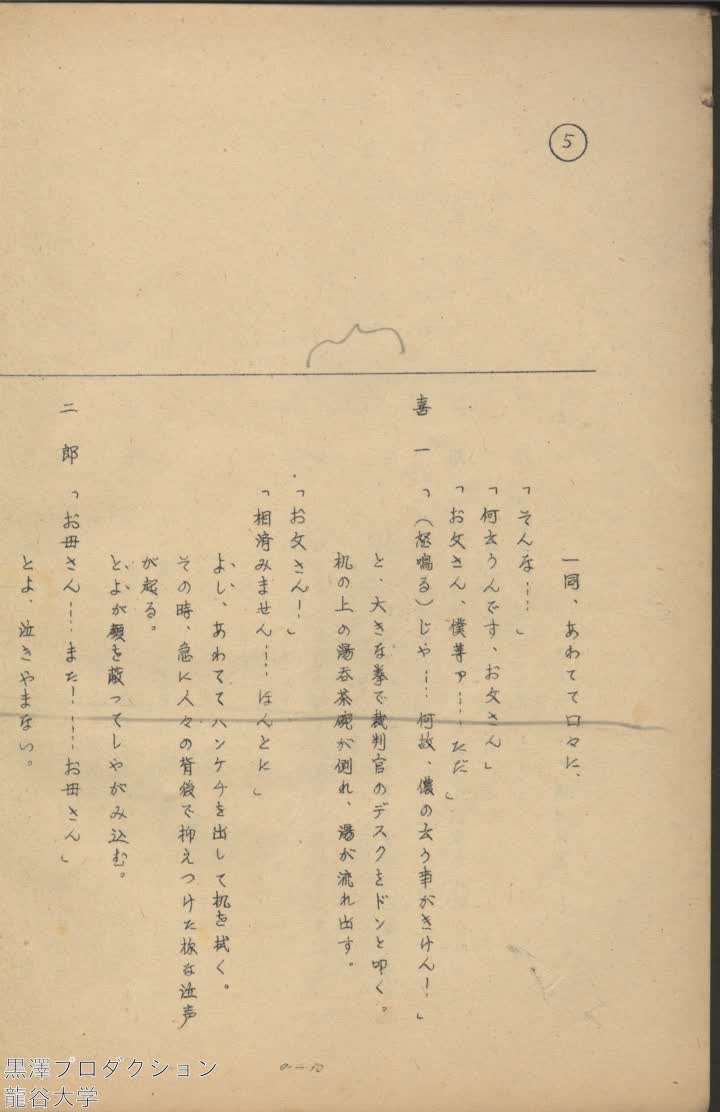 5
一同、あわてて口々に、
「そんな……」
「何云うんです、お父さん」
「お父さん、僕等ァ……ただ」
喜一「（怒鳴る）じゃ……何故、儂の云う事がきけん！」
と、大きな拳で裁判官のデスクをドンと叩く。
机の上の湯呑茶碗が倒れ、湯が流れ出す。
「お父さん！」
「相済みません……ほんとに」
よし、あわててハンケチを出して机を拭く。
その時、急に人々の背後で抑えつけた様な泣声
が起る。
とよが顔を蔽ってしゃがみ込む。
二郎「お母さん……また！……お母さん」
とよ、泣きやまない。
a-10
黒澤プロダクション
龍谷大学